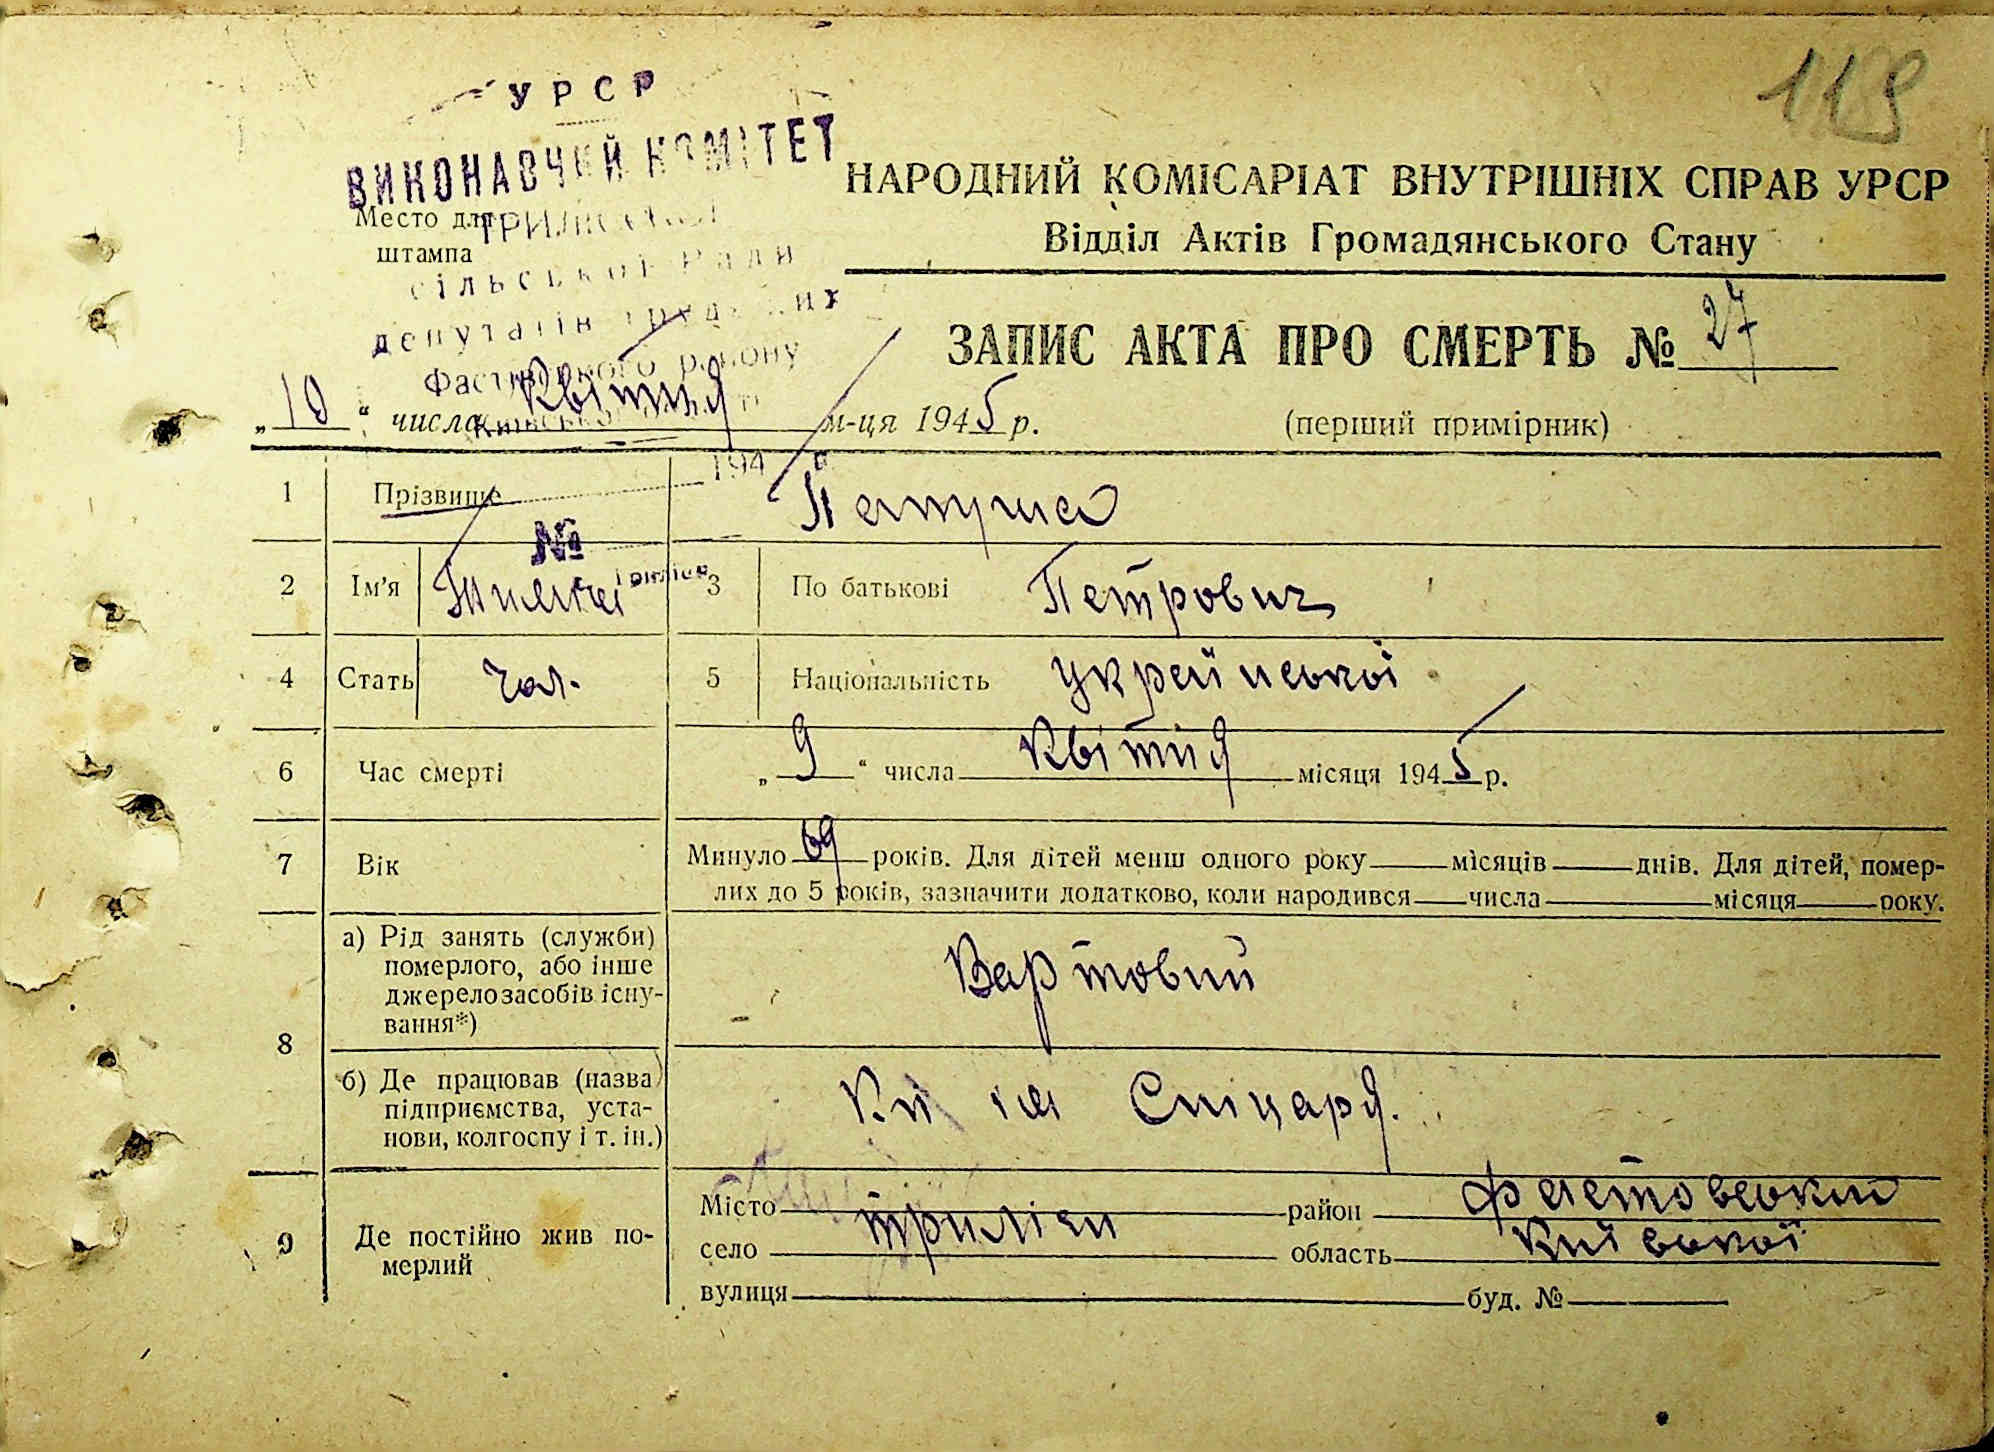 119
УРСР
ВИКОНАВЧИЙ КОМІТЕТ
НАРОДНИЙ КОМІСАРІАТ ВНУТРІШНІХ СПРАВ УРСР
Место для
штампа
Відділ Актів Громадянського Стану
сільської Ради
депутатів трудящих
Фастівського району
ЗАПИС АКТА ПРО СМЕРТЬ № 27
„10“ числа квітня м-ця 1945 р.
(перший примірник)
194
1 Прізвище
№
2 Ім'я
3 По батькові Петрович
4 Стать чол.
5 Національність
6 Час смерті „9“ числа квітня місяця 1945 р.
7 Вік Минуло 69 років. Для дітей менш одного року місяців днів. Для дітей, помер-
лих до 5 років, зазначити додатково, коли народився числа місяця року.
8 а) Рід занять (служби)
померлого, або інше
джерело засобів існу-
вання*)
Вартовий
б) Де працював (назва
підприємства, уста-
нови, колгоспу і т. ін.)
9 Де постійно жив по-
мерлий
Місто район Фастовський
село Триліси область Київської
вулиця буд. №